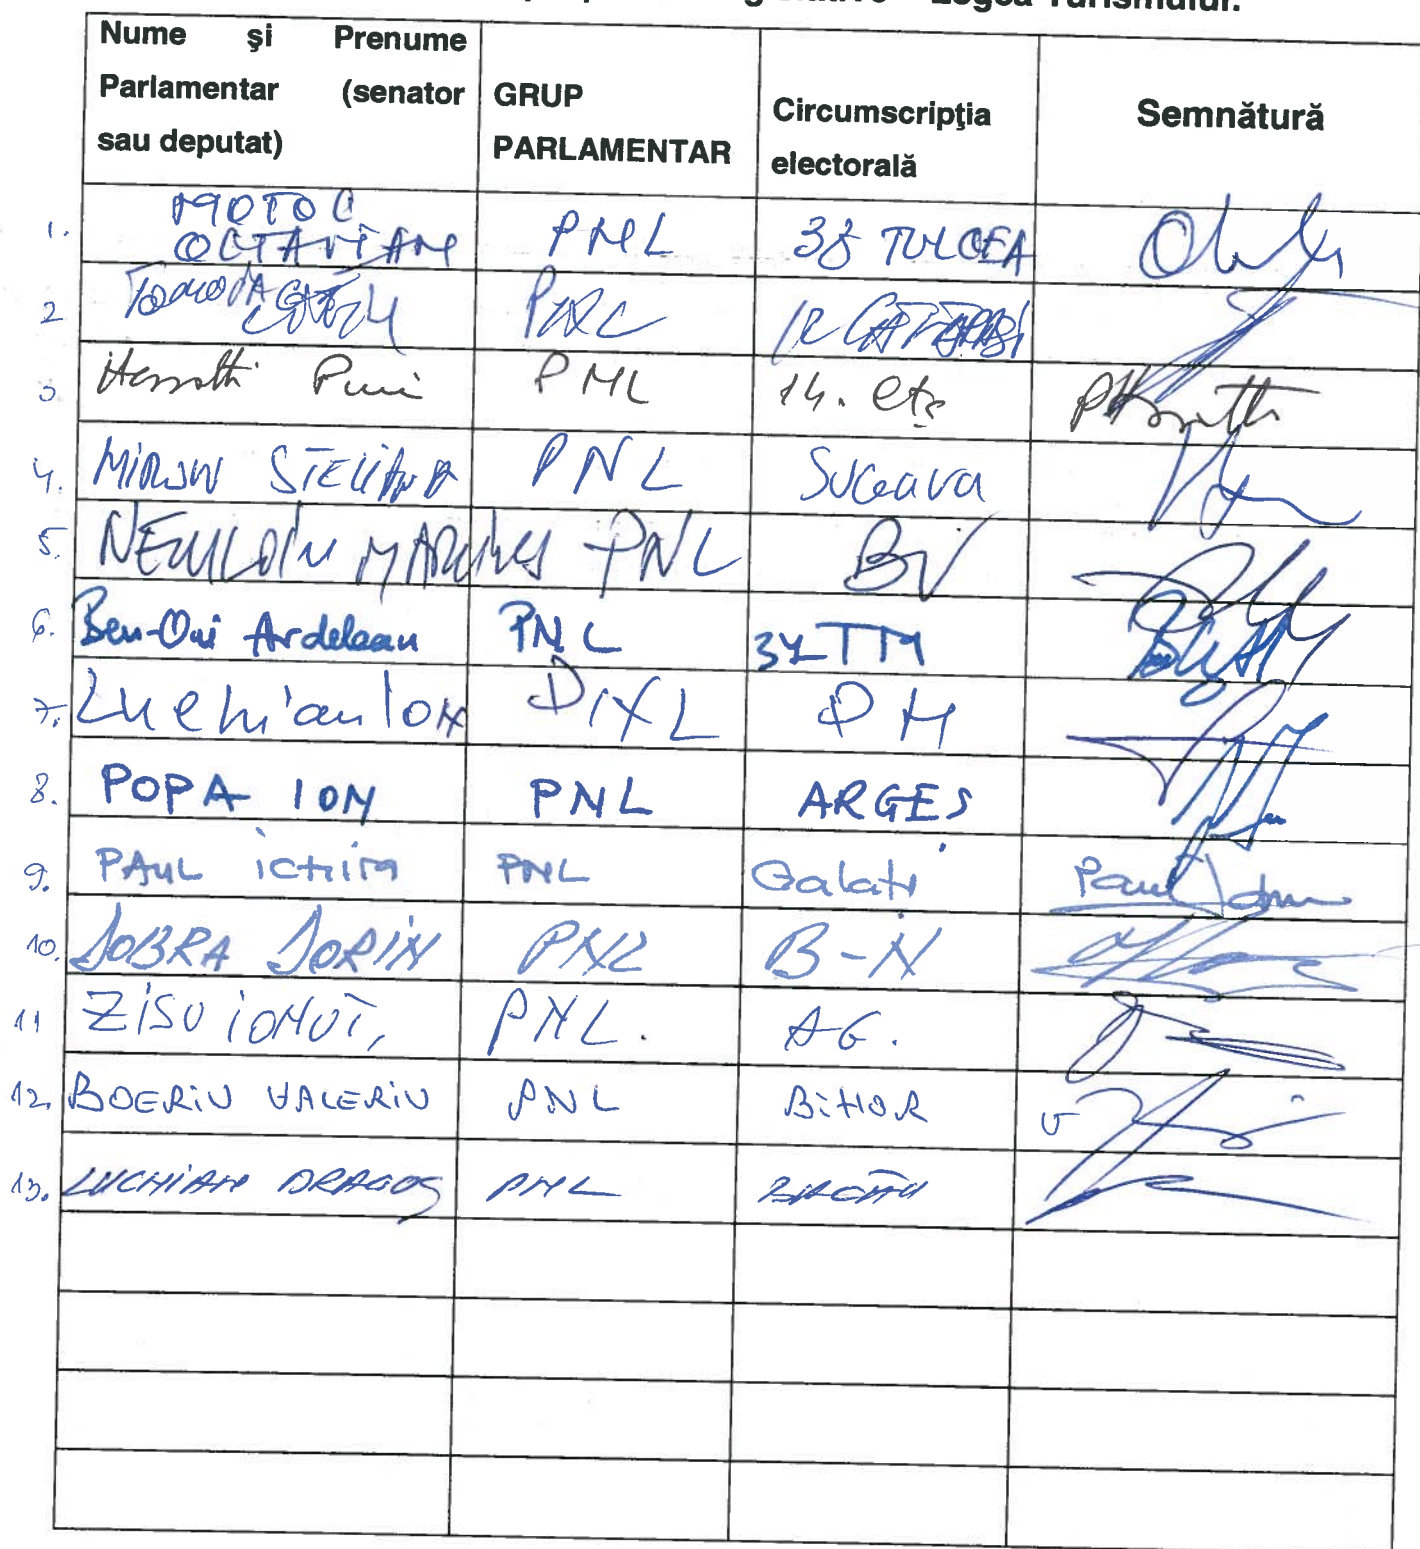 Legea Turismului.
Nume și Prenume
Parlamentar (senator
sau deputat)
GRUP
PARLAMENTAR
Circumscripţia
electorală
Semnătură
1. MOTOC
OCTAVIAN PNL 38 TULCEA
2 PNL
3 PNL 14.
4. MIRON STELIANA PNL Suceava
5. NECULOIU MARIUS PNL BV
6. Ben-Oni Ardelean PNL TM
7. Luchian Ion PNL PH
8. POPA ION PNL ARGES
9. PAUL ichim PNL Galati Paul
10. DOBRA DORIN PNL B-N
11 ZISU IONUT, PNL. AG.
12. BOERIU VALERIU PNL BIHOR
13. LUCHIAN DRAGOȘ PNL BACĂU